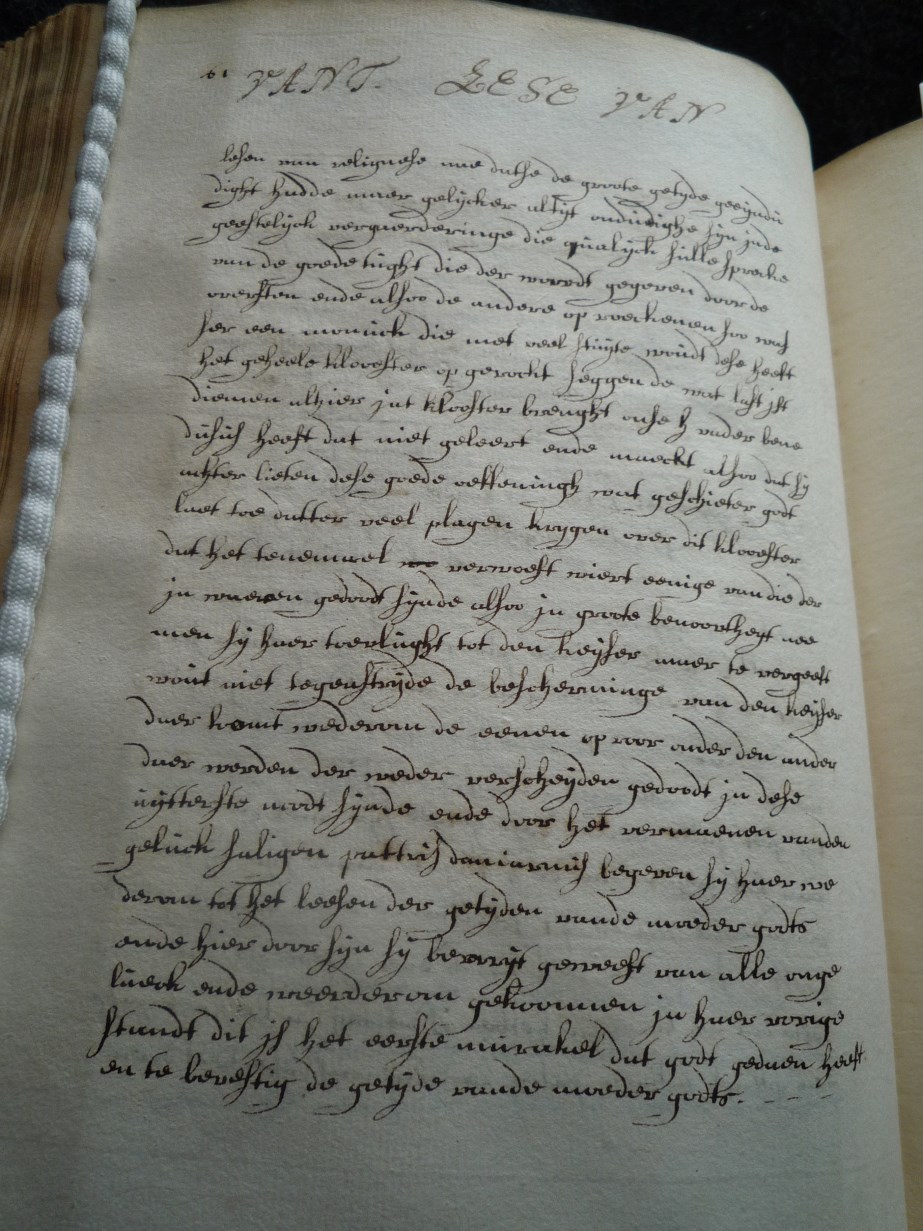 61 VANT. LESE VAN
lesen van religuese nae datse de groote getyde geeyndi
dight hadde maer gelycker altyt onduidighe syn jnde
geestelyck vergaerderinge die qualyck sulle sprecke
van de goede tught die der wordt gegeven door de
oversten ende alsoo de andere op roeckenen soo was
ser een monick die met veel stuyte woudt dese heeft
het geheele klooster op gerockt seggen de wat last jst
diemen alhier jnt klooster brenght onse h vader bene
dictus heeft dat niet geleert ende maeckt alsoo dat sy
achter lieten dese goede oeffeningh wat geschieter godt
laet toe datter veel plagen krygen over dit klooster
dat het tenemael verwoest wiert eenige van die der
jn waeren gedoodt synde alsoo jn groote benoortheyt nae
men sy haer toevlught tot den keyser maer te vergeefs
wout niet tegenstryde de bescherminge van den keyser
daer komt wederom de eenen oproor onder den ander
daer worden der weder verscheyden gedoodt jn dese
uytterste noodt synde ende door het vermaenen vanden
geluck saligen pattris damianus begeven sy haer we
derom tot het leesen der getyden vande moeder godts
ende hier door syn sy bevryt geweest van alle onge
lueck ende weerderom gekoomen jn haer vorige
standt dit js het eerste mirakel dat godt gedaen heeft
en te bevestig de getyde vande moeder godts. - - -